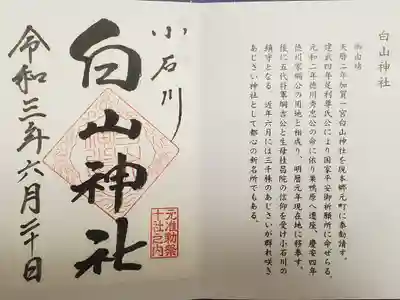 白山神社
御由緒
天暦二年加賀一宮白山神社を現本郷元町に奉勧請す。
建武四年足利尊氏公により国家平安御祈願所に命ぜらる。
元和二年徳川秀忠公の命に依り巣鴨原へ遷座、慶安四年
徳川家綱公の用地と相成り、明暦元年現在地に移奉す。
後に五代将軍綱吉公と生母桂昌院の信仰を受け小石川の
鎮守となる。近年六月には三千株のあじさいが群れ咲き
あじさい神社として都心の新名所でもある。
小石川
白山神社
元准勅祭
十社之内
令和三年六月二十日